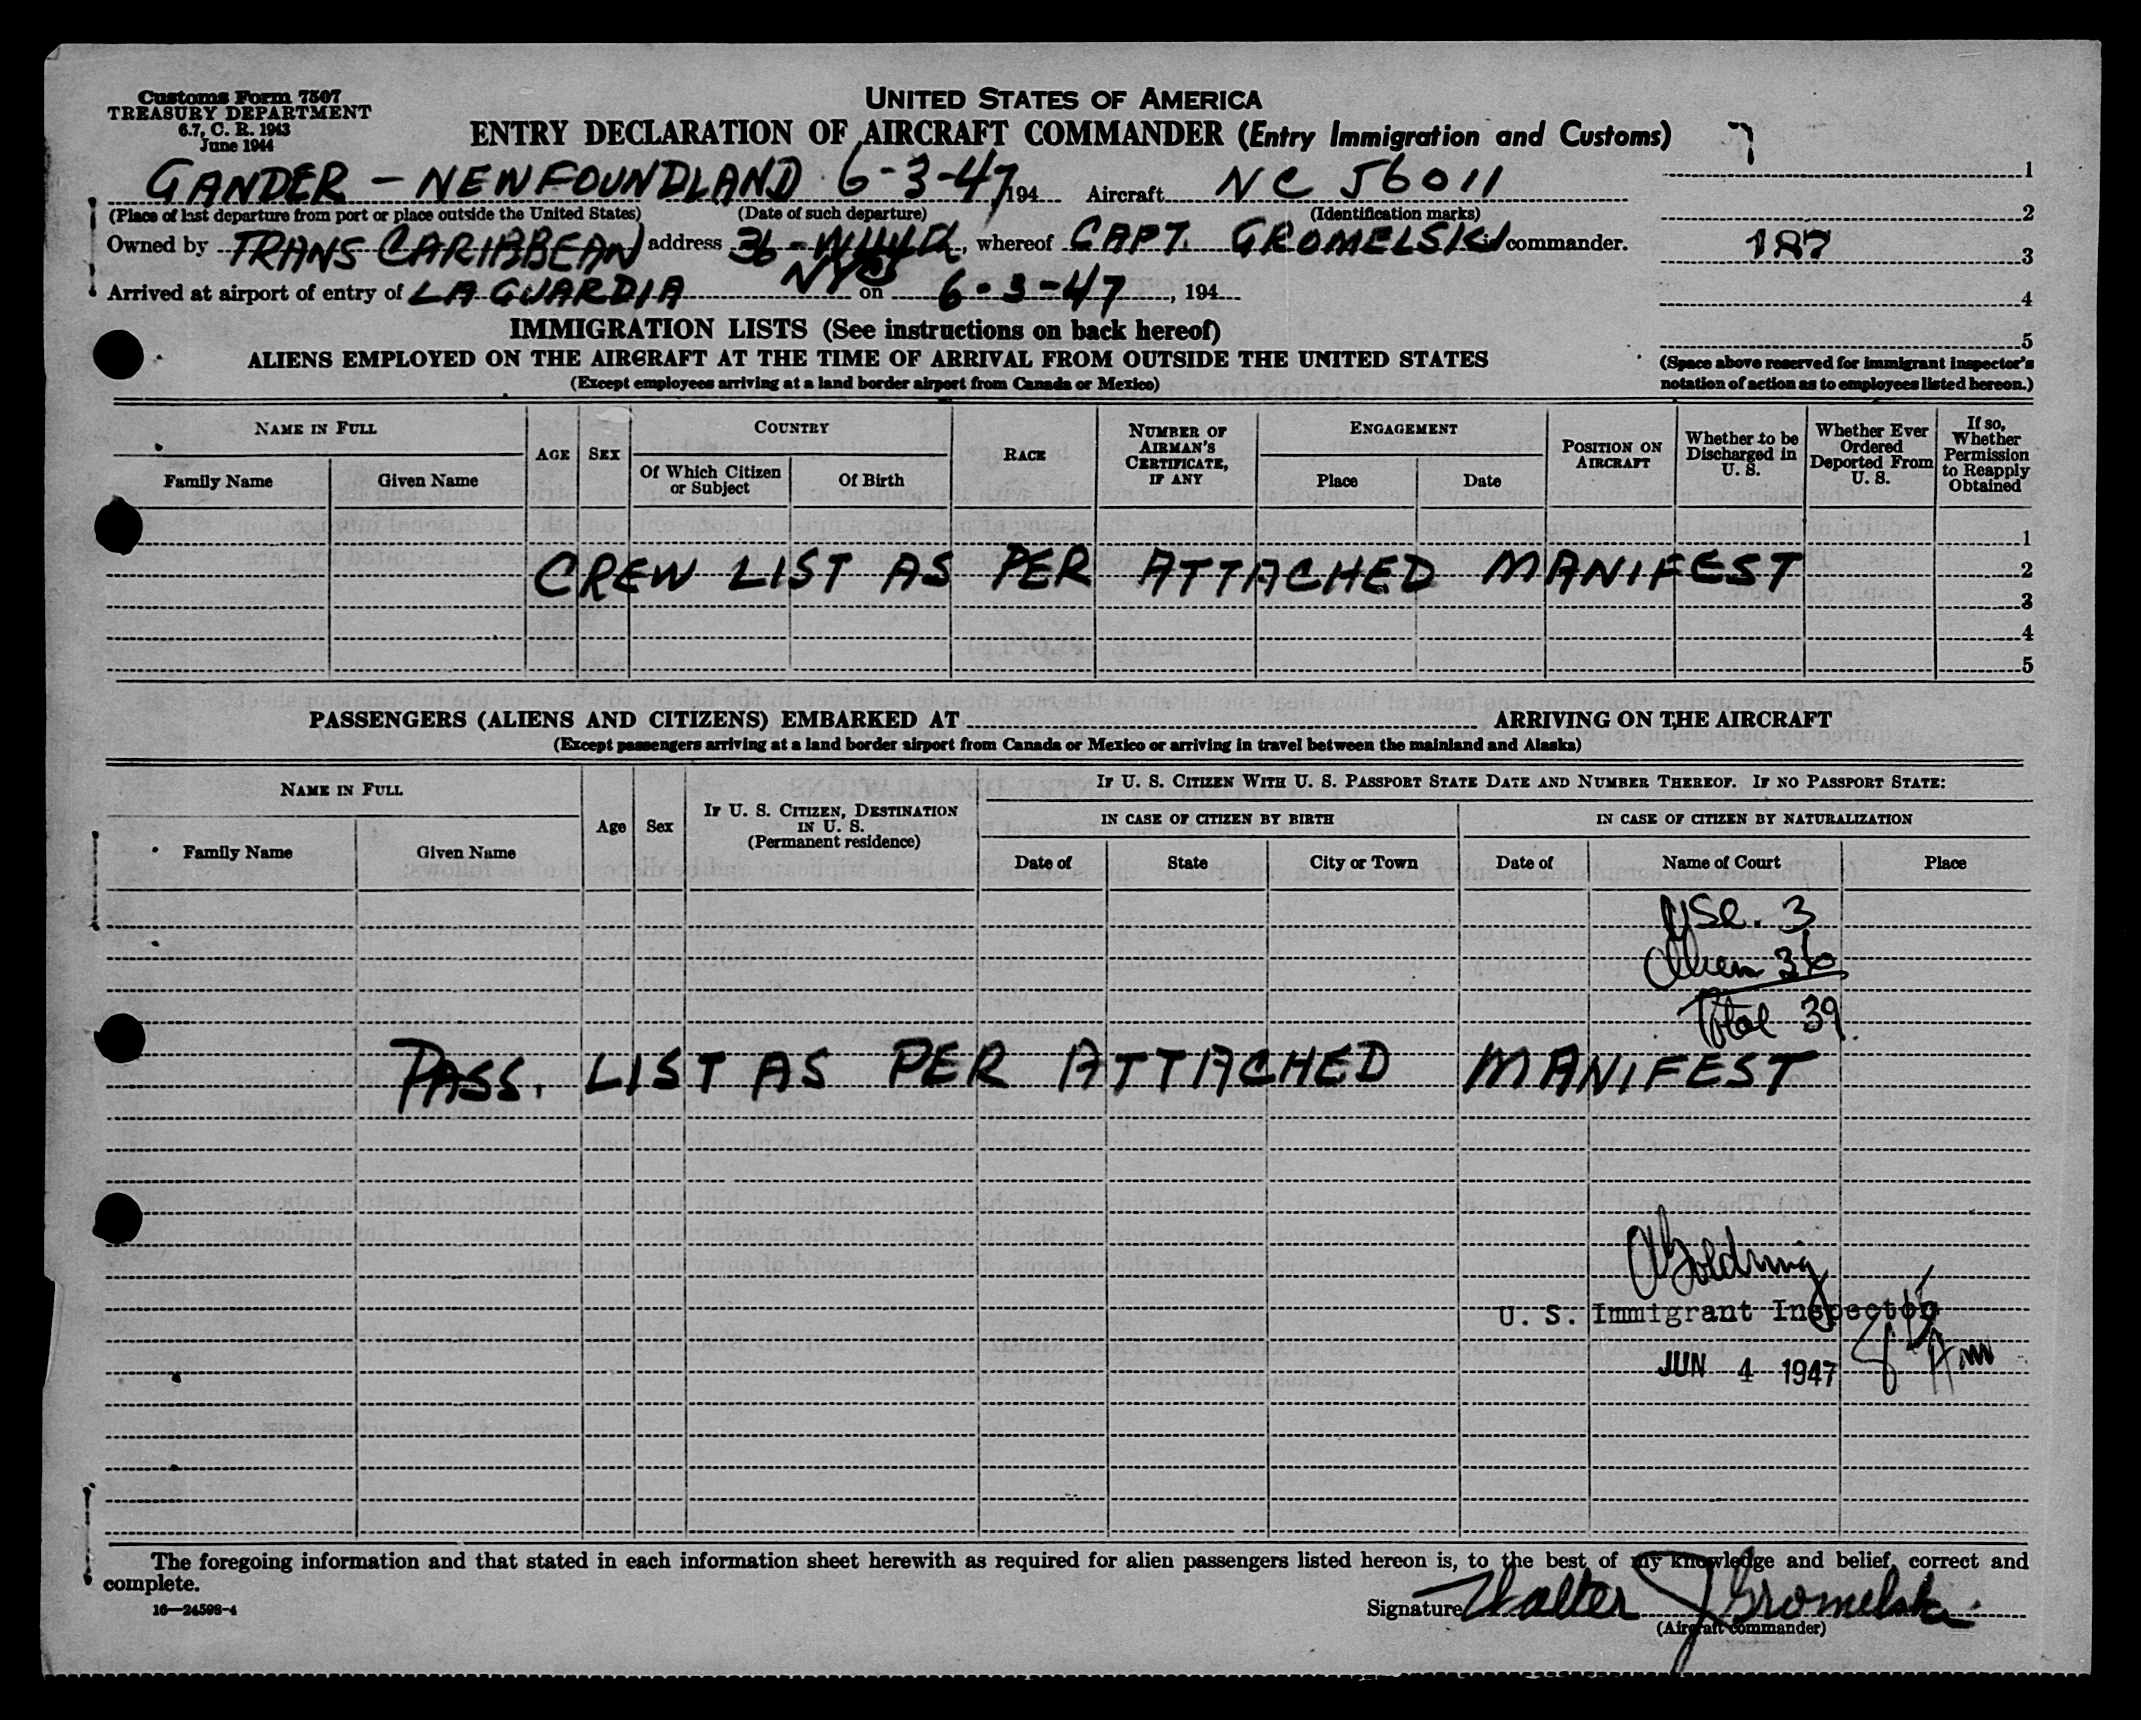 Customs Form 7507
TREASURY DEPARTMENT
6.7, C. R. 1943
June 1944
UNITED STATES OF AMERICA
ENTRY DECLARATION OF AIRCRAFT COMMANDER (Entry Immigration and Customs)
GANDER - NEWFOUNDLAND 6-3-47, 194 Aircraft NC 56011
(Place of last departure from port or place outside the United States) (Date of such departure) (Identification marks)
Owned by TRANS CARIBBEAN address 36- NYC, whereof CAPT. GROMELSKI is commander.
Arrived at airport of entry of LA GUARDIA on 6-3-47, 194
7
1
2
187 3
4
5
(Space above reserved for immigrant inspector's
notation of action as to employees listed hereon.)
IMMIGRATION LISTS (See instructions on back hereof)
ALIENS EMPLOYED ON THE AIRCRAFT AT THE TIME OF ARRIVAL FROM OUTSIDE THE UNITED STATES
(Except employees arriving at a land border airport from Canada or Mexico)
NAME IN FULL
Family Name Given Name
AGE SEX
COUNTRY
Of Which Citizen or Subject Of Birth
RACE
NUMBER OF AIRMAN'S CERTIFICATE, IF ANY
ENGAGEMENT
Place Date
POSITION ON AIRCRAFT
Whether to be Discharged in U. S.
Whether Ever Ordered Deported From U. S.
If so, Whether Permission to Reapply Obtained
1
CREW LIST AS PER ATTACHED MANIFEST 2
3
4
5
PASSENGERS (ALIENS AND CITIZENS) EMBARKED AT ARRIVING ON THE AIRCRAFT
(Except passengers arriving at a land border airport from Canada or Mexico or arriving in travel between the mainland and Alaska)
NAME IN FULL
Family Name Given Name
Age Sex
IF U. S. CITIZEN, DESTINATION IN U. S.
(Permanent residence)
IF U. S. CITIZEN WITH U. S. PASSPORT STATE DATE AND NUMBER THEREOF. IF NO PASSPORT STATE:
IN CASE OF CITIZEN BY BIRTH IN CASE OF CITIZEN BY NATURALIZATION
Date of State City or Town Date of Name of Court Place
USC. 3
Alien 36
Total 39
PASS. LIST AS PER ATTACHED MANIFEST
A Goldring
U. S. Immigrant Inspector
JUN 4 1947
AM
The foregoing information and that stated in each information sheet herewith as required for alien passengers listed hereon is, to the best of my knowledge and belief, correct and
complete.
16—24598-4
Signature Walter J Gromelski
(Aircraft commander)